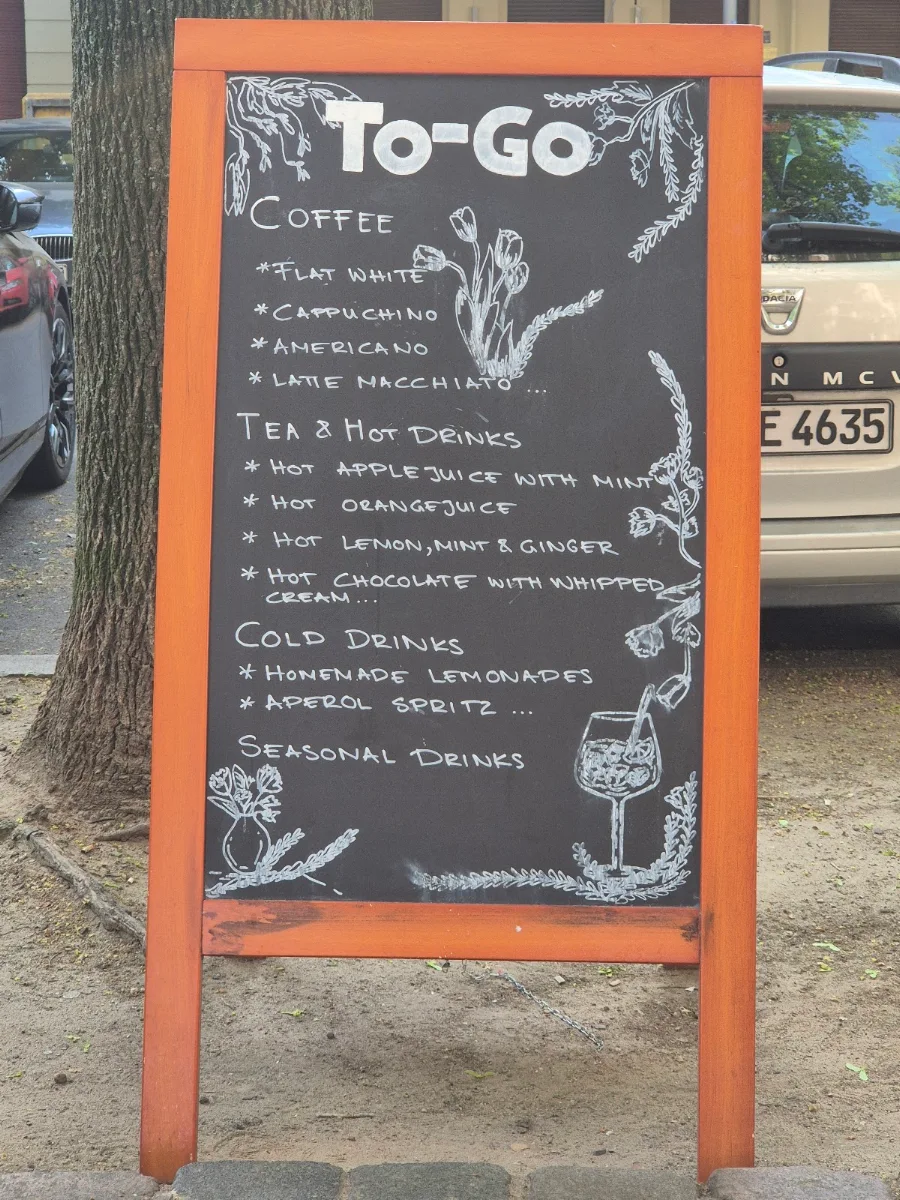 To-Go
COFFEE
*FLAT WHITE
*CAPPUCHINO
*AMERICANO
*LATTE MACCHIATO ...
TEA & HOT DRINKS
* HOT APPLEJUICE WITH MINT
* HOT ORANGEJUICE
* HOT LEMON, MINT & GINGER
* HOT CHOCOLATE WITH WHIPPED
CREAM...
COLD DRINKS
* HOMEMADE LEMONADES
* APEROL SPRITZ ...
SEASONAL DRINKS
DACIA
N MCV
E 4635